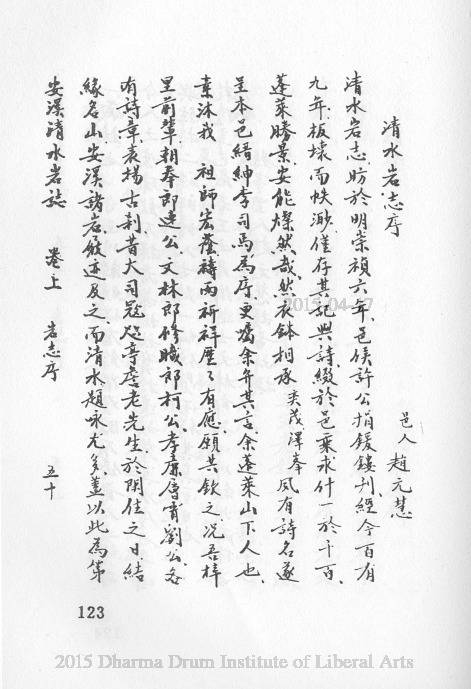 清水岩志序
邑人 趙元慧
清水岩志昉於明崇禎六年邑侯許公捐鍰鏤刋經今百有
九年板壊而帙渺僅存其記與詩綴於邑乗永什一於千百
蓬萊勝景安能燦然哉然衣鉢相承奕茂澤峯風有詩名遂
呈本邑縉紳李司馬為序更囑余弁其言余蓬萊山下人也
素沐我 祖師宏蔭禱雨祈祥歴了有應願共欽之况吾梓
里前輩朝奉郎建公文林郎修職郎柯公孝廉唇宵劉公各
有詩章表揚古刹昔大司冦 亭 老先生於閑住之日結
緣名山安溪諸岩屐迹及之而清水題咏尤多盖以此為第
安溪清水岩誌 卷上 岩志序 五十
123
2015-04-17
2015 Dharma Drum Institute of Liberal Arts